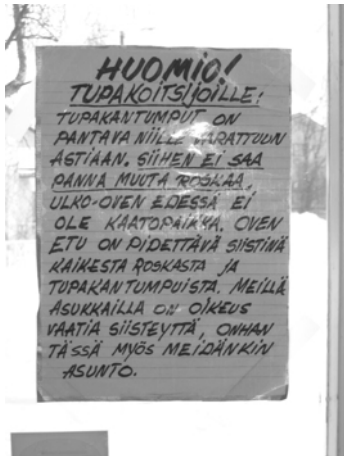 HUOMIO!
TUPAKOITSIJOILLE:
TUPAKANTUMPUT ON
PANTAVA NIILLE VARATTUUN
ASTIAAN. SIIHEN EI SAA
PANNA MUUTA ROSKAA.
ULKO-OVEN EDESSÄ EI
OLE KAATOPAIKKA. OVEN
ETU ON PIDETTÄVÄ SIISTINÄ
KAIKESTA ROSKASTA JA
TUPAKANTUMPUISTA. MEILLÄ
ASUKKAILLA ON OIKEUS
VAATIA SIISTEYTTÄ, ONHAN
TÄSSÄ MYÖS MEIDÄNKIN
ASUNTO.